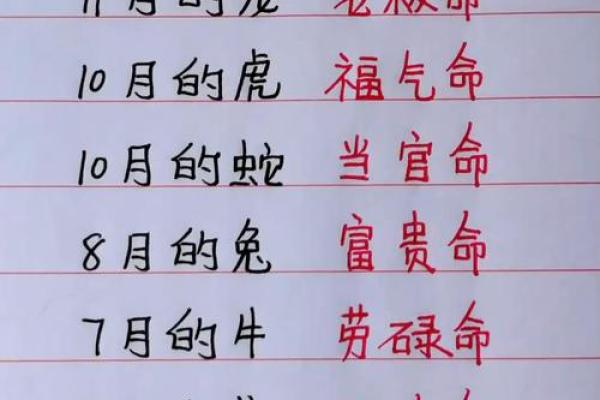 月的龙 老板命
10月的虎 福气命
10月的蛇 当官命
8月的兔 富贵命
7月的牛 劳碌命